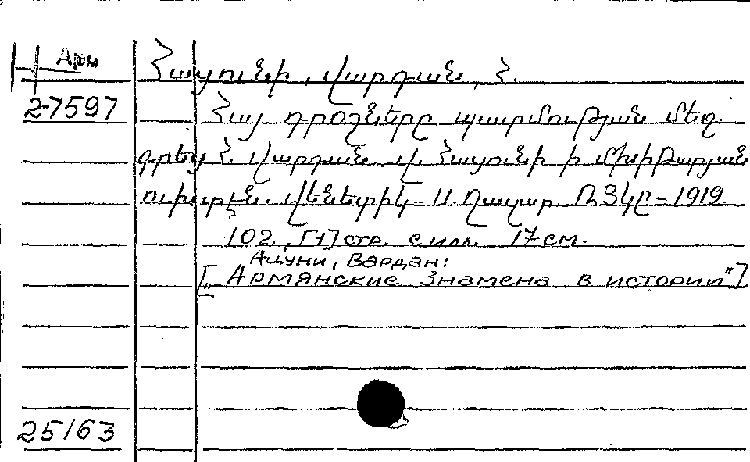 Арм
Հացունի, Վարդան, Հ.
2-7597
Հայ դրօշները պատմութեան մեջ.
գրեց Հ. Վարդան Վ. Հացունի ի Մխիթարյան
ուխտէն. Վենետիկ - Ս. Ղազար ՌՅԿԸ - 1919
102, [1] стр. с илл. 17 см.
Ацуни, Вардан:
[„Армянские знамена в истории"]
25163